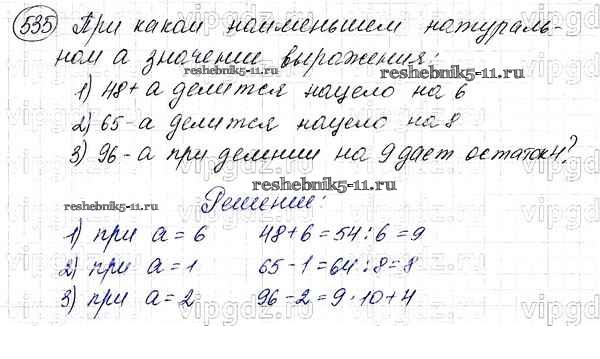 535 При каком наименьшем натураль-
ном а значении выражения:
reshebnik5-11.ru
reshebnik5-11.ru
1) 48+а делится нацело на 6
2) 65-а делится нацело на 8
3) 96-а при делении на 9 дает остаток 4?
reshebnik5-11.ru
Решение:
reshebnik5-11.ru
1) при а = 6 48+6=54:6=9
2) при а = 1 65-1=64:8=8
3) при а = 2 96-2=9·10+4
vipgdz.ru